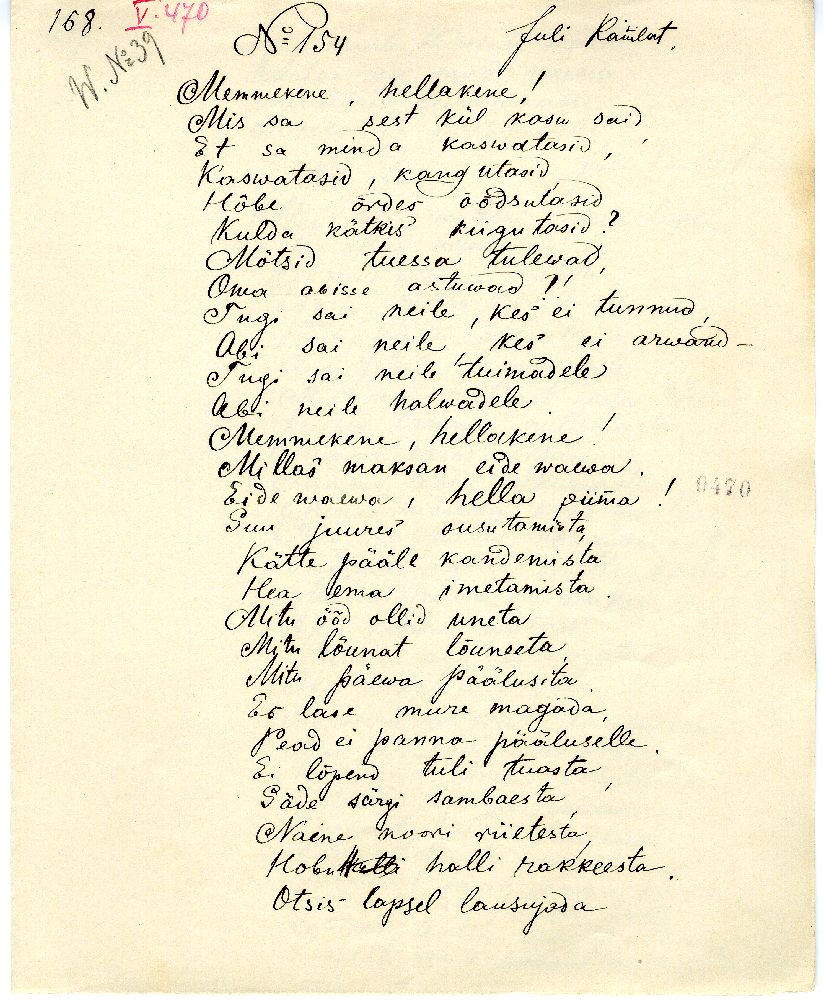 168. V. 470
W. № 39
№ 154 Juli Raudat.
Memmekene, hellakene!
Mis sa sest kül kasu said
Et sa minda kaswatasid,
Kaswatasid, kangutasid,
Hõbe õrdes õõdsutasid
Kulda kätkis kiigutasid?
Mõtsid tuessa tulewad,
Oma abisse astuwad?!
Tugi sai neile, kes ei tunnud,
Abi sai neile, kes ei arwand –
Tugi sai neile tuimadele
Abi neile halwadele.
Memmekene, hellakene!
Millas maksan eide waewa.
Eide waewa, hella piima!
0470
Suu juures susutamista,
Kätte pääle kandemista
Hea ema imetamista.
Mitu ööd ollid uneta
Mitu lõunat lõuneeta,
Mitu päewa päälusita.
Es lase mure magada,
Pead ei panna pääluselle.
Ei lõpend tuli tuasta,
Säde särgi sambaesta,
Naine noori riietesta,
Hobu halli rakkeesta.
Otsis lapsel lausujada